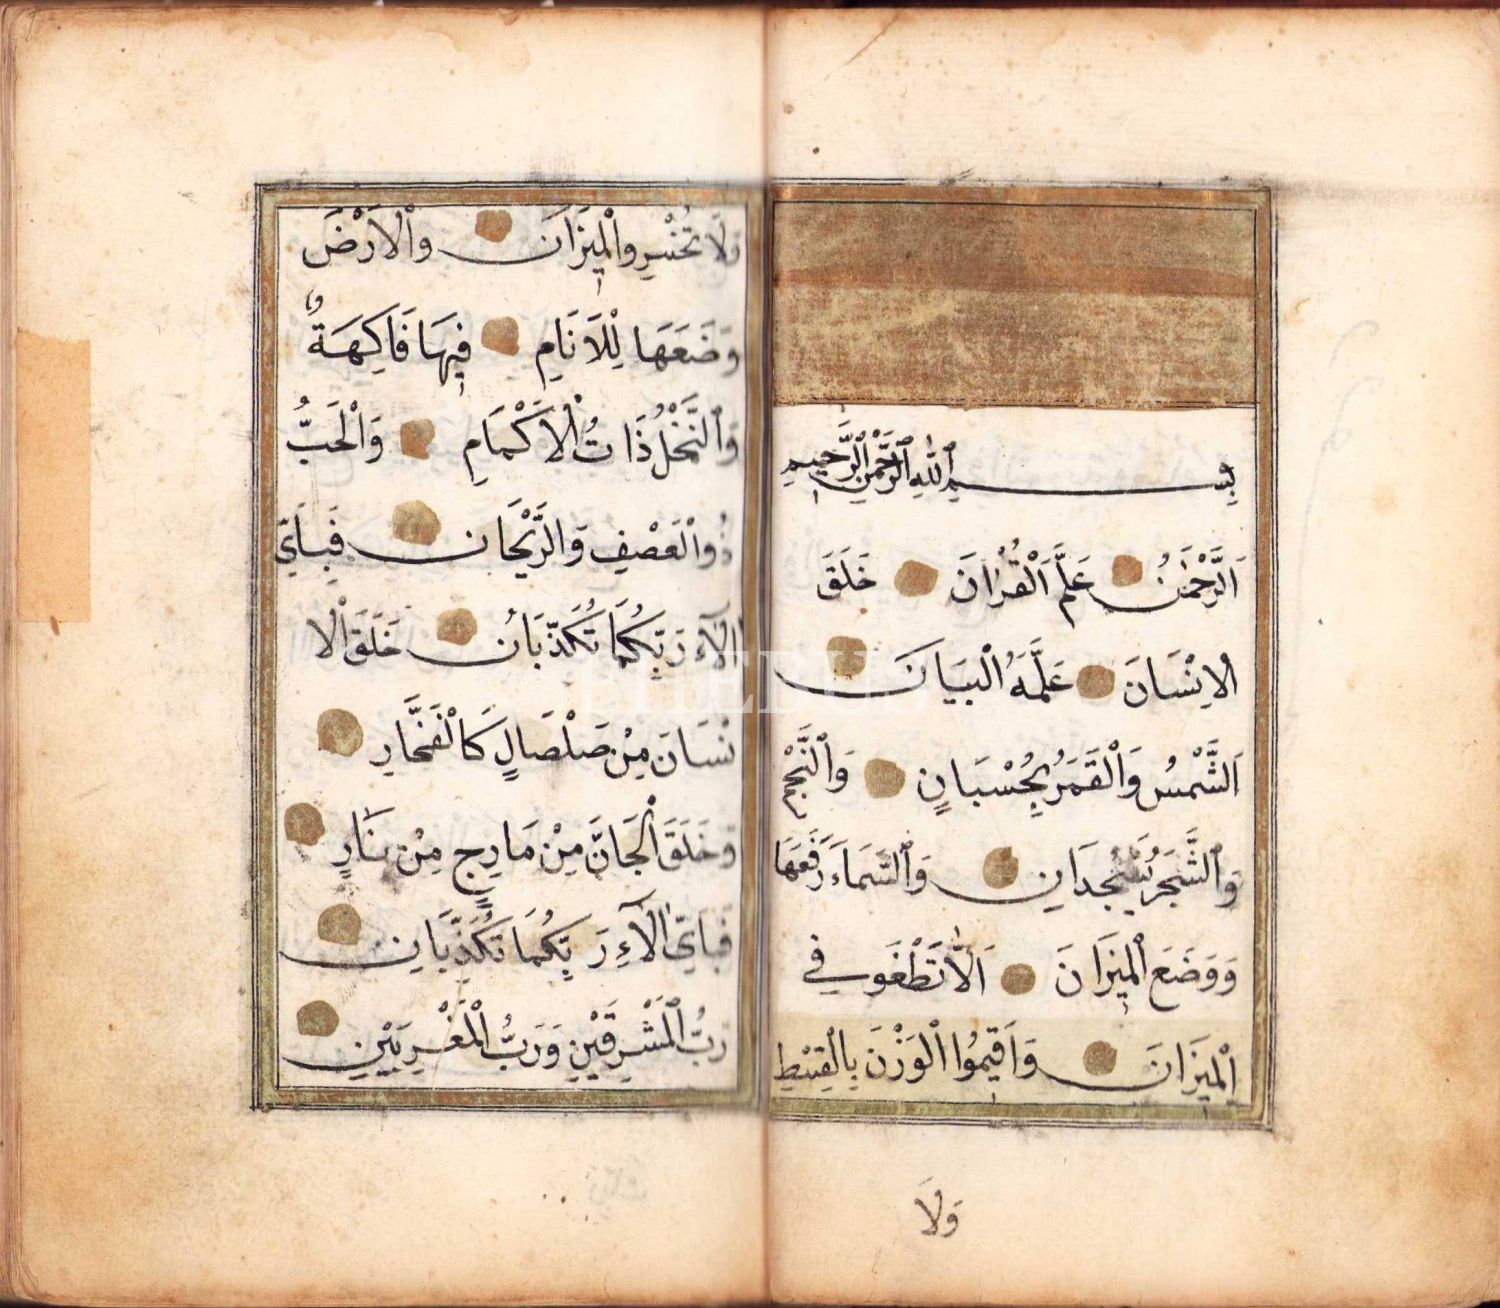 بِسْمِ ٱللّٰهِ ٱلرَّحْمٰنِ ٱلرَّحِيمِ
اَلرَّحْمٰنُ عَلَّمَ الْقُرْاٰنَ خَلَقَ
الْاِنْسَانَ عَلَّمَهُ الْبَيَانَ
اَلشَّمْسُ وَالْقَمَرُ بِحُسْبَانٍ وَالنَّجْمُ
وَٱلشَّجَرُ يَسْجُدَانِ وَٱلسَّمَاءَ رَفَعَهَا
وَوَضَعَ الْمِيزَانَ اَلَّا تَطْغَوْ فِي
الْمِيزَانَ وَاَقِيمُوا الْوَزْنَ بِالْقِسْطِ
وَلَا
وَلَا تُخْسِرُوالْمِيزَانَ وَالْاَرْضَ
وَضَعَهَا لِلْاَنَامِ فِيهَا فَاكِهَةٌ
وَٱلنَّخْلُ ذَاتُ الْاَكْمَامِ وَالْحَبُّ
ذُوالْعَصْفِ وَالرَّيْحَانِ فَبِاَيِّ
اٰلَاءِ رَبِّكُمَا تُكَذِّبَانِ خَلَقَ الْا
نْسَانَ مِنْ صَلْصَالٍ كَالْفَخَّارِ
وَخَلَقَ الْجَانَّ مِنْ مَارِجٍ مِنْ نَارٍ
فَبِاَيِّ اٰلَاءِ رَبِّكُمَا تُكَذِّبَانِ
رَبُّ الْمَشْرِقَيْنِ وَرَبُّ الْمَغْرِبَيْنِ